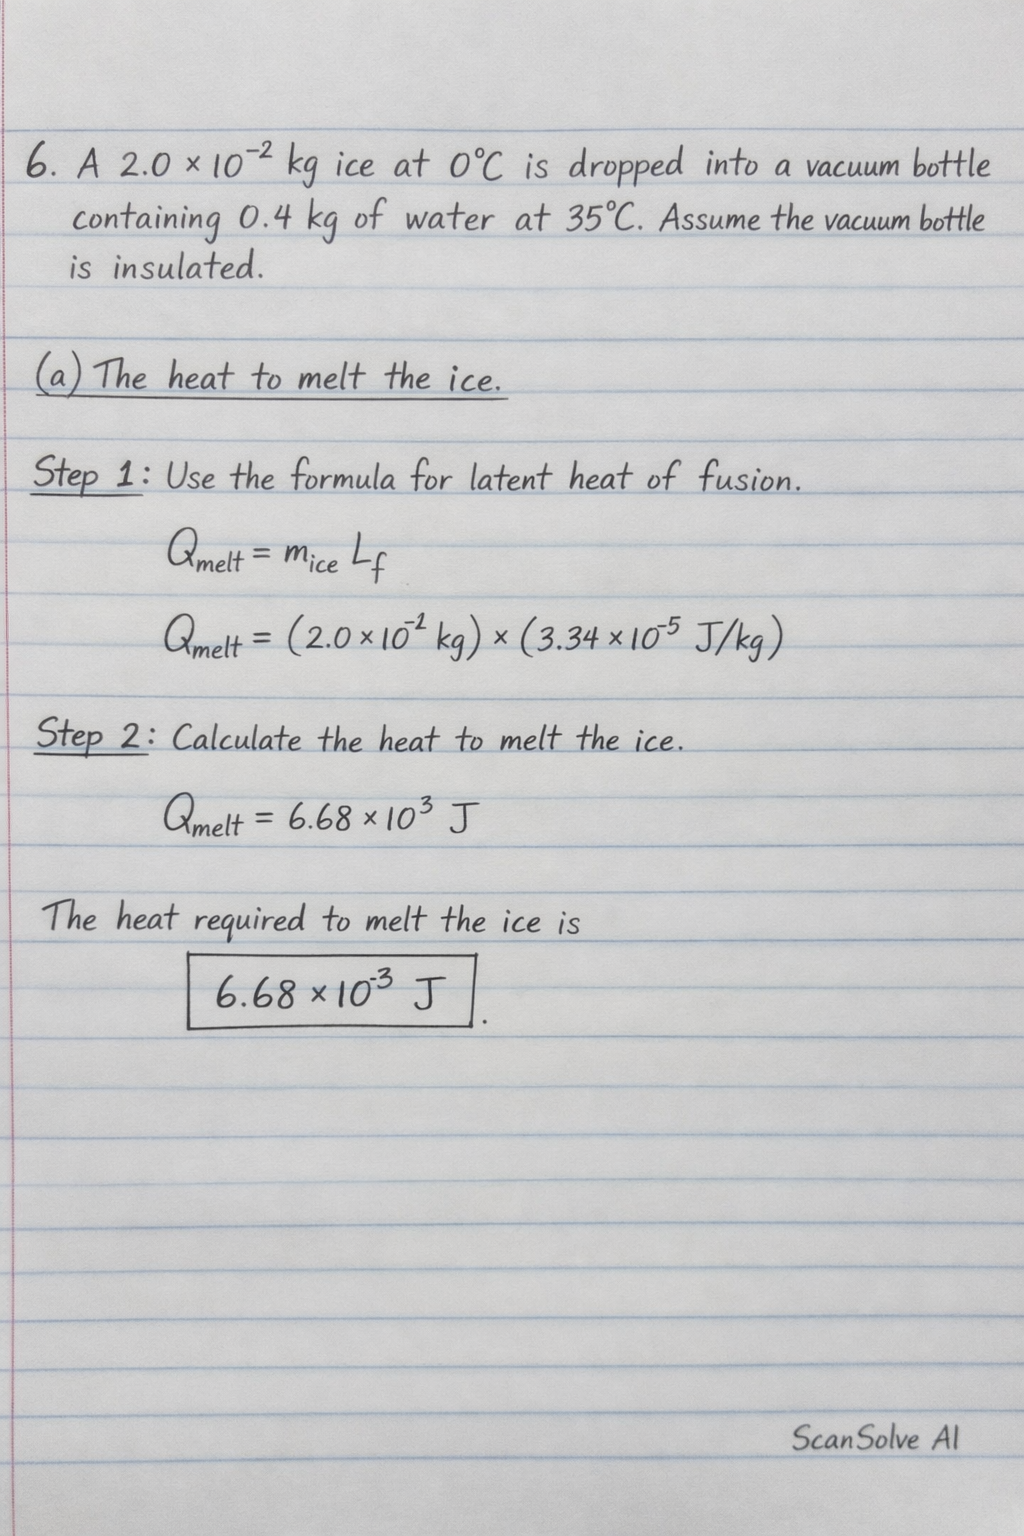 6. A 2.0 × 10⁻² kg ice at 0°C is dropped into a vacuum bottle
containing 0.4 kg of water at 35°C. Assume the vacuum bottle
is insulated.
(a) The heat to melt the ice.
Step 1: Use the formula for latent heat of fusion.
Qmelt = mice Lf
Qmelt = (2.0 × 10⁻² kg) × (3.34 × 10⁻⁵ J/kg)
Step 2: Calculate the heat to melt the ice.
Qmelt = 6.68 × 10³ J
The heat required to melt the ice is
6.68 × 10⁻³ J.
ScanSolve AI